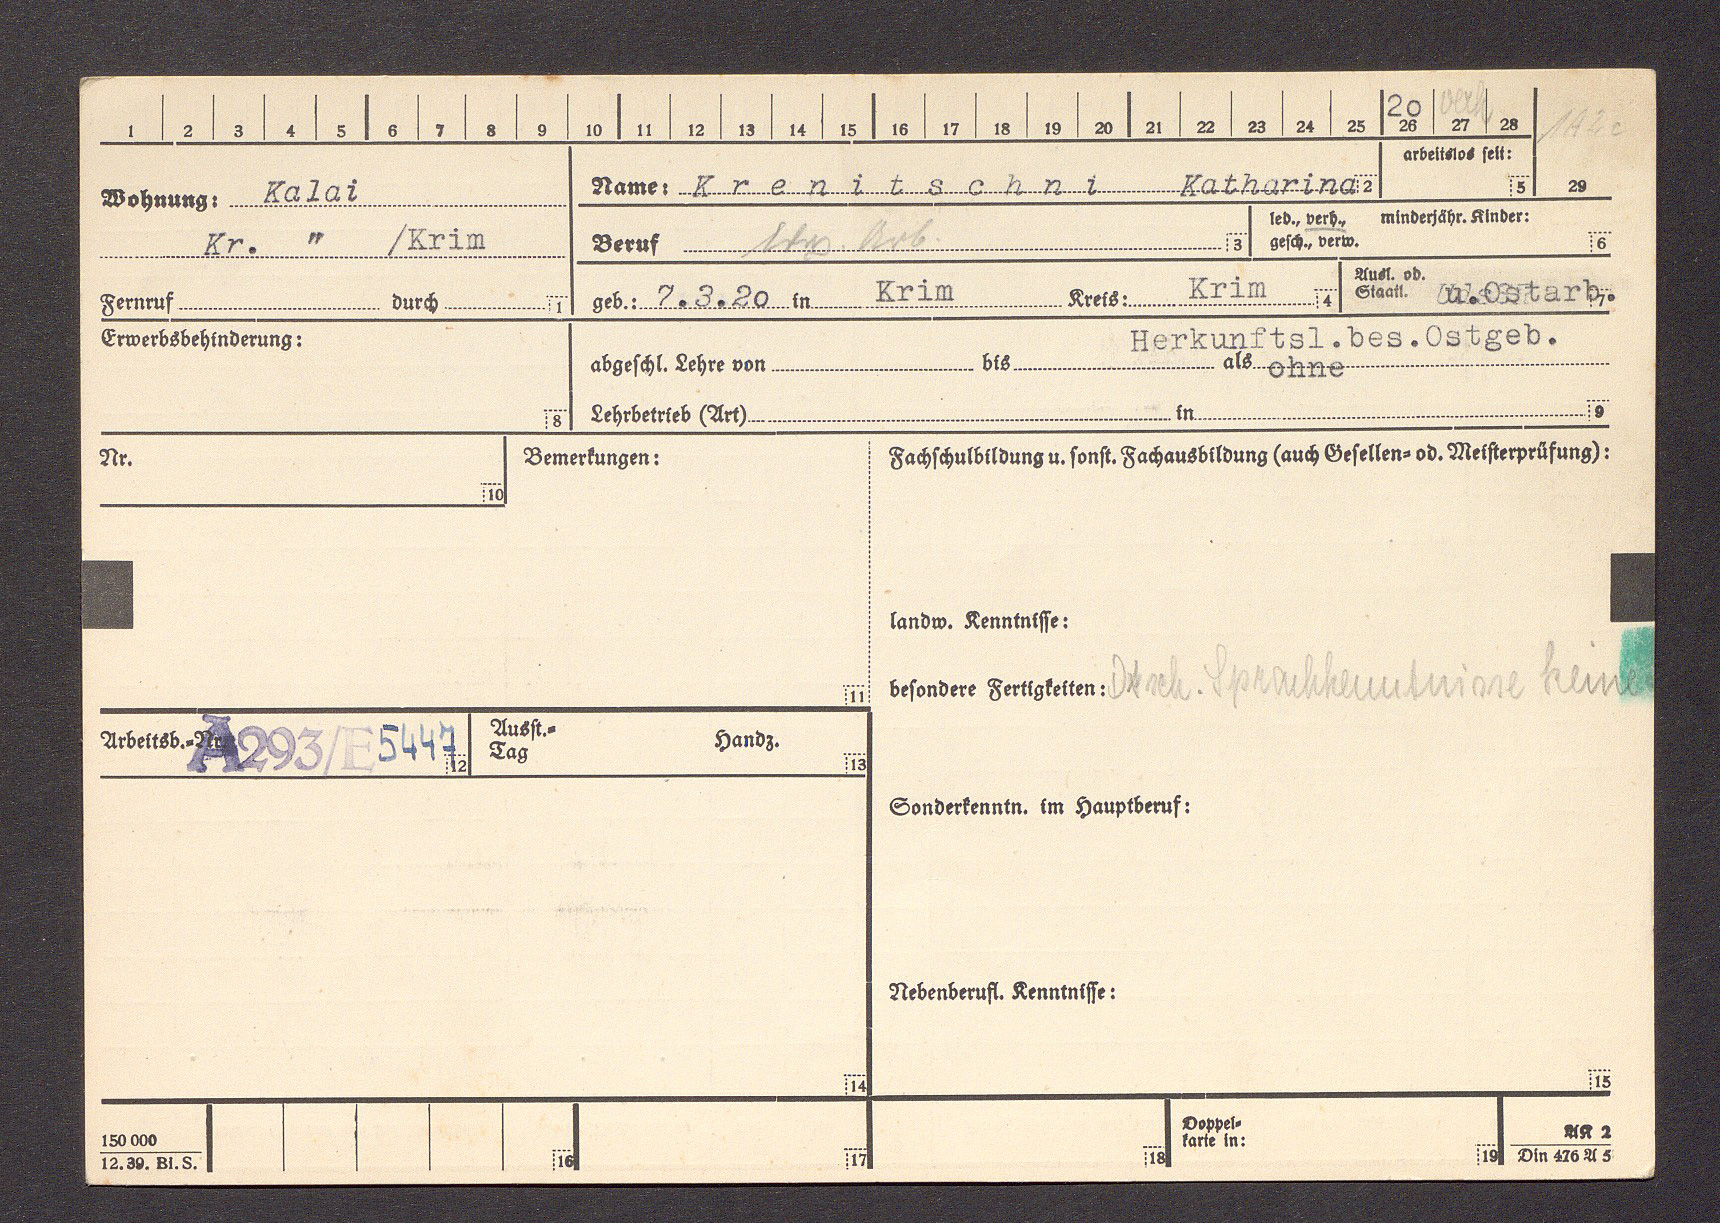 1 2 3 4 5 6 7 8 9 10 11 12 13 14 15 16 17 18 19 20 21 22 23 24 25 26 27 28
20 verh
arbeitslos seit:
5 29
Wohnung: Kalai
Kr. " /Krim
Fernruf durch 1
Name: Krenitschni Katharina 2
Beruf Arb. 3
led., verh., gesch., verw.
minderjähr. Kinder: 6
geb.: 7.3.20 in Krim Kreis: Krim 4
Ausl. od. Staatl. u.Ostarb. 7
Erwerbsbehinderung:
8
Herkunftsl.bes.Ostgeb.
abgeschl. Lehre von bis als ohne
Lehrbetrieb (Art) in 9
Nr.
10
Bemerkungen:
11
Fachschulbildung u. sonst. Fachausbildung (auch Gesellen- od. Meisterprüfung):
landw. Kenntnisse:
besondere Fertigkeiten: Dtsch. Sprachkenntnisse keine
Arbeitsb.-Nr. A293/E5447 12
Ausst.-Tag
Handz. 13
Sonderkenntn. im Hauptberuf:
Nebenberufl. Kenntnisse:
14 15
150 000
12. 39. Bl. S.
16 17 18
Doppelkarte in: 19
AK 2
Din 476 A 5